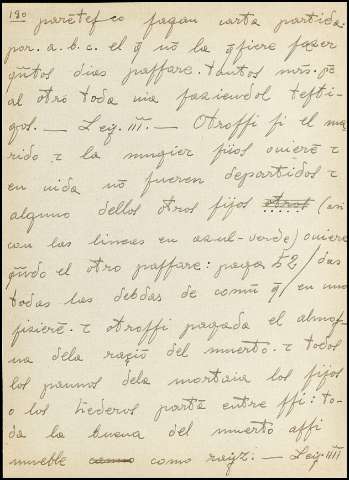 180
paretesco fagan carta partida
por. a. b. c. el q̃ no la q̃siere fazer
q̃ntos dias passare. tantos mr̃s. pe
al otro toda uia faziendol testi-
gos. — Ley. III. — Otrossi si el ma
rido. τ la mugier fijos ouierẽ τ
en uida nõ fueren departidos τ
alguno dellos otros fijos otros (asi
con las lineas en azul-verde) ouiere
q̃ndo el otro passare: paga 52/das
todas las debdas de comũ q̃/en uno
fizierẽ. τ otrossi pagada el almos-
na dela raçiõ del muerto. τ todos
los pannos dela mortaia los fijos
o los hederos partã entre ssi: to-
da la buena del muerto assi
mueble como como rayz. — Ley IIII